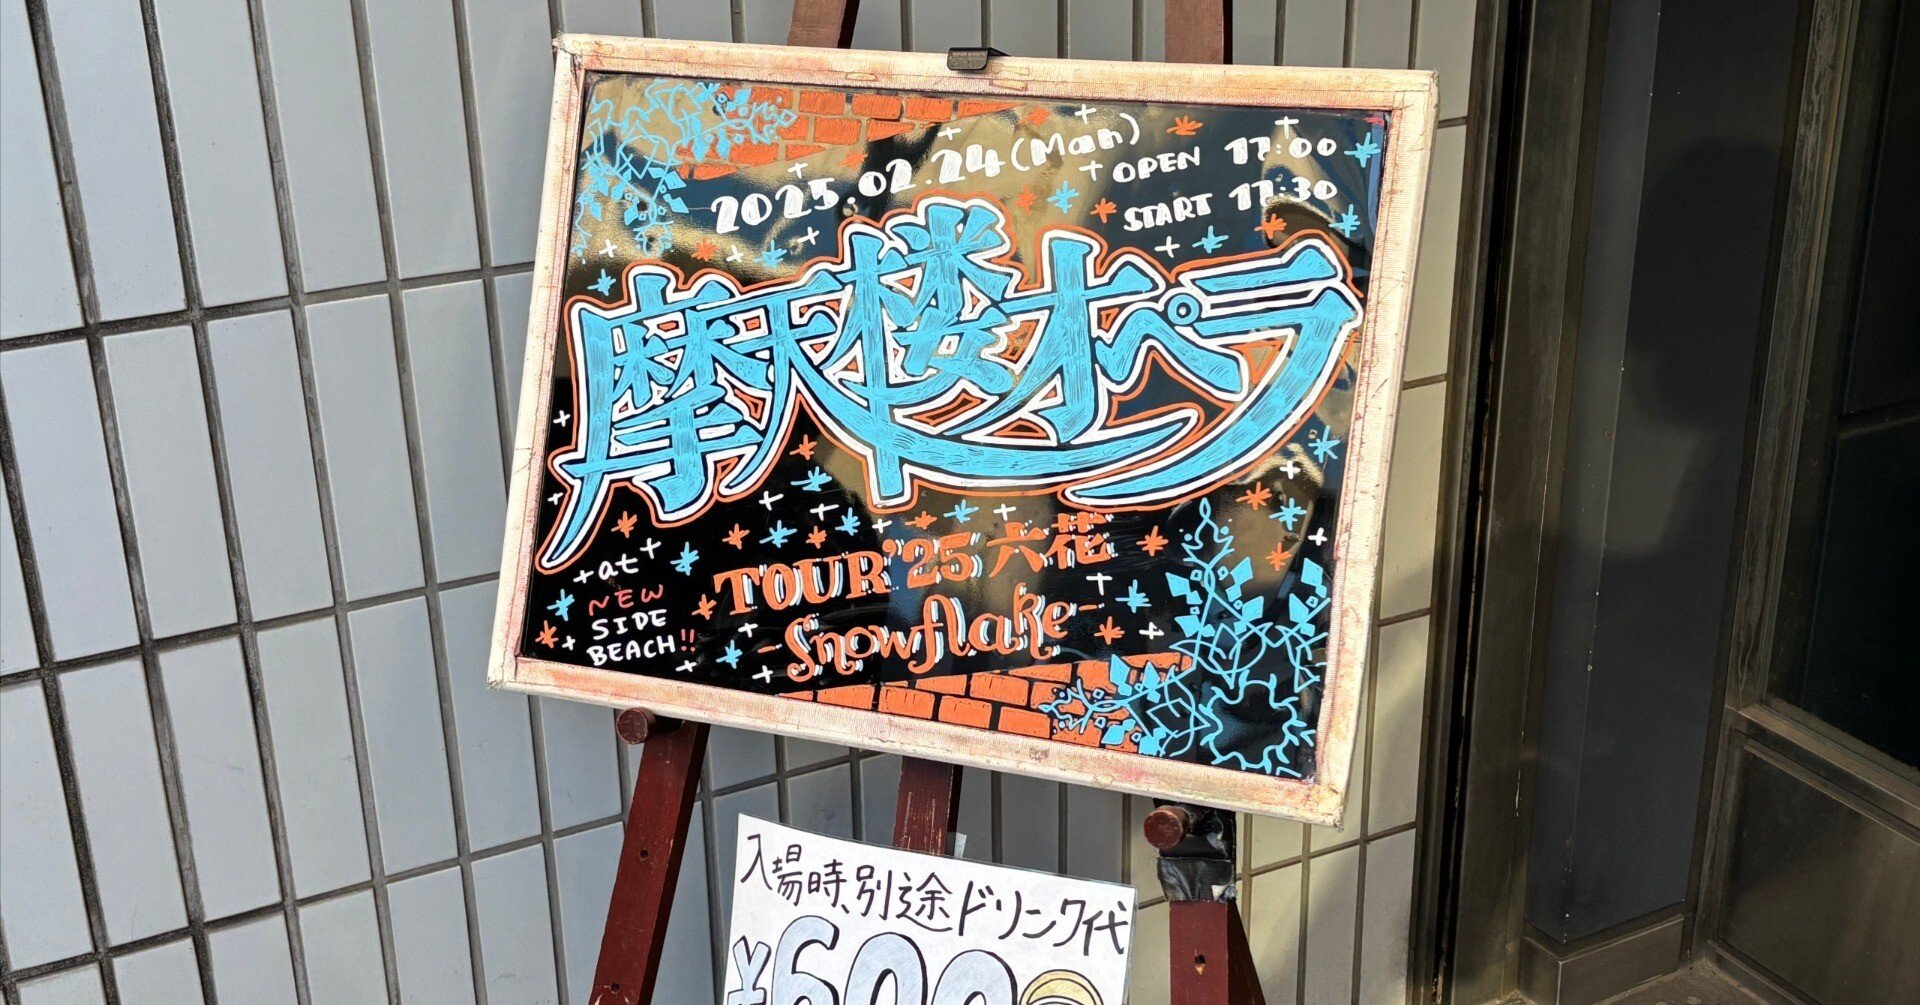 2025.02.24(Mon)
OPEN 17:00
START 17:30
摩天楼オペラ
TOUR'25 六花
-Snowflake-
at
NEW
SIDE
BEACH!!
入場時、別途ドリンク代
¥600